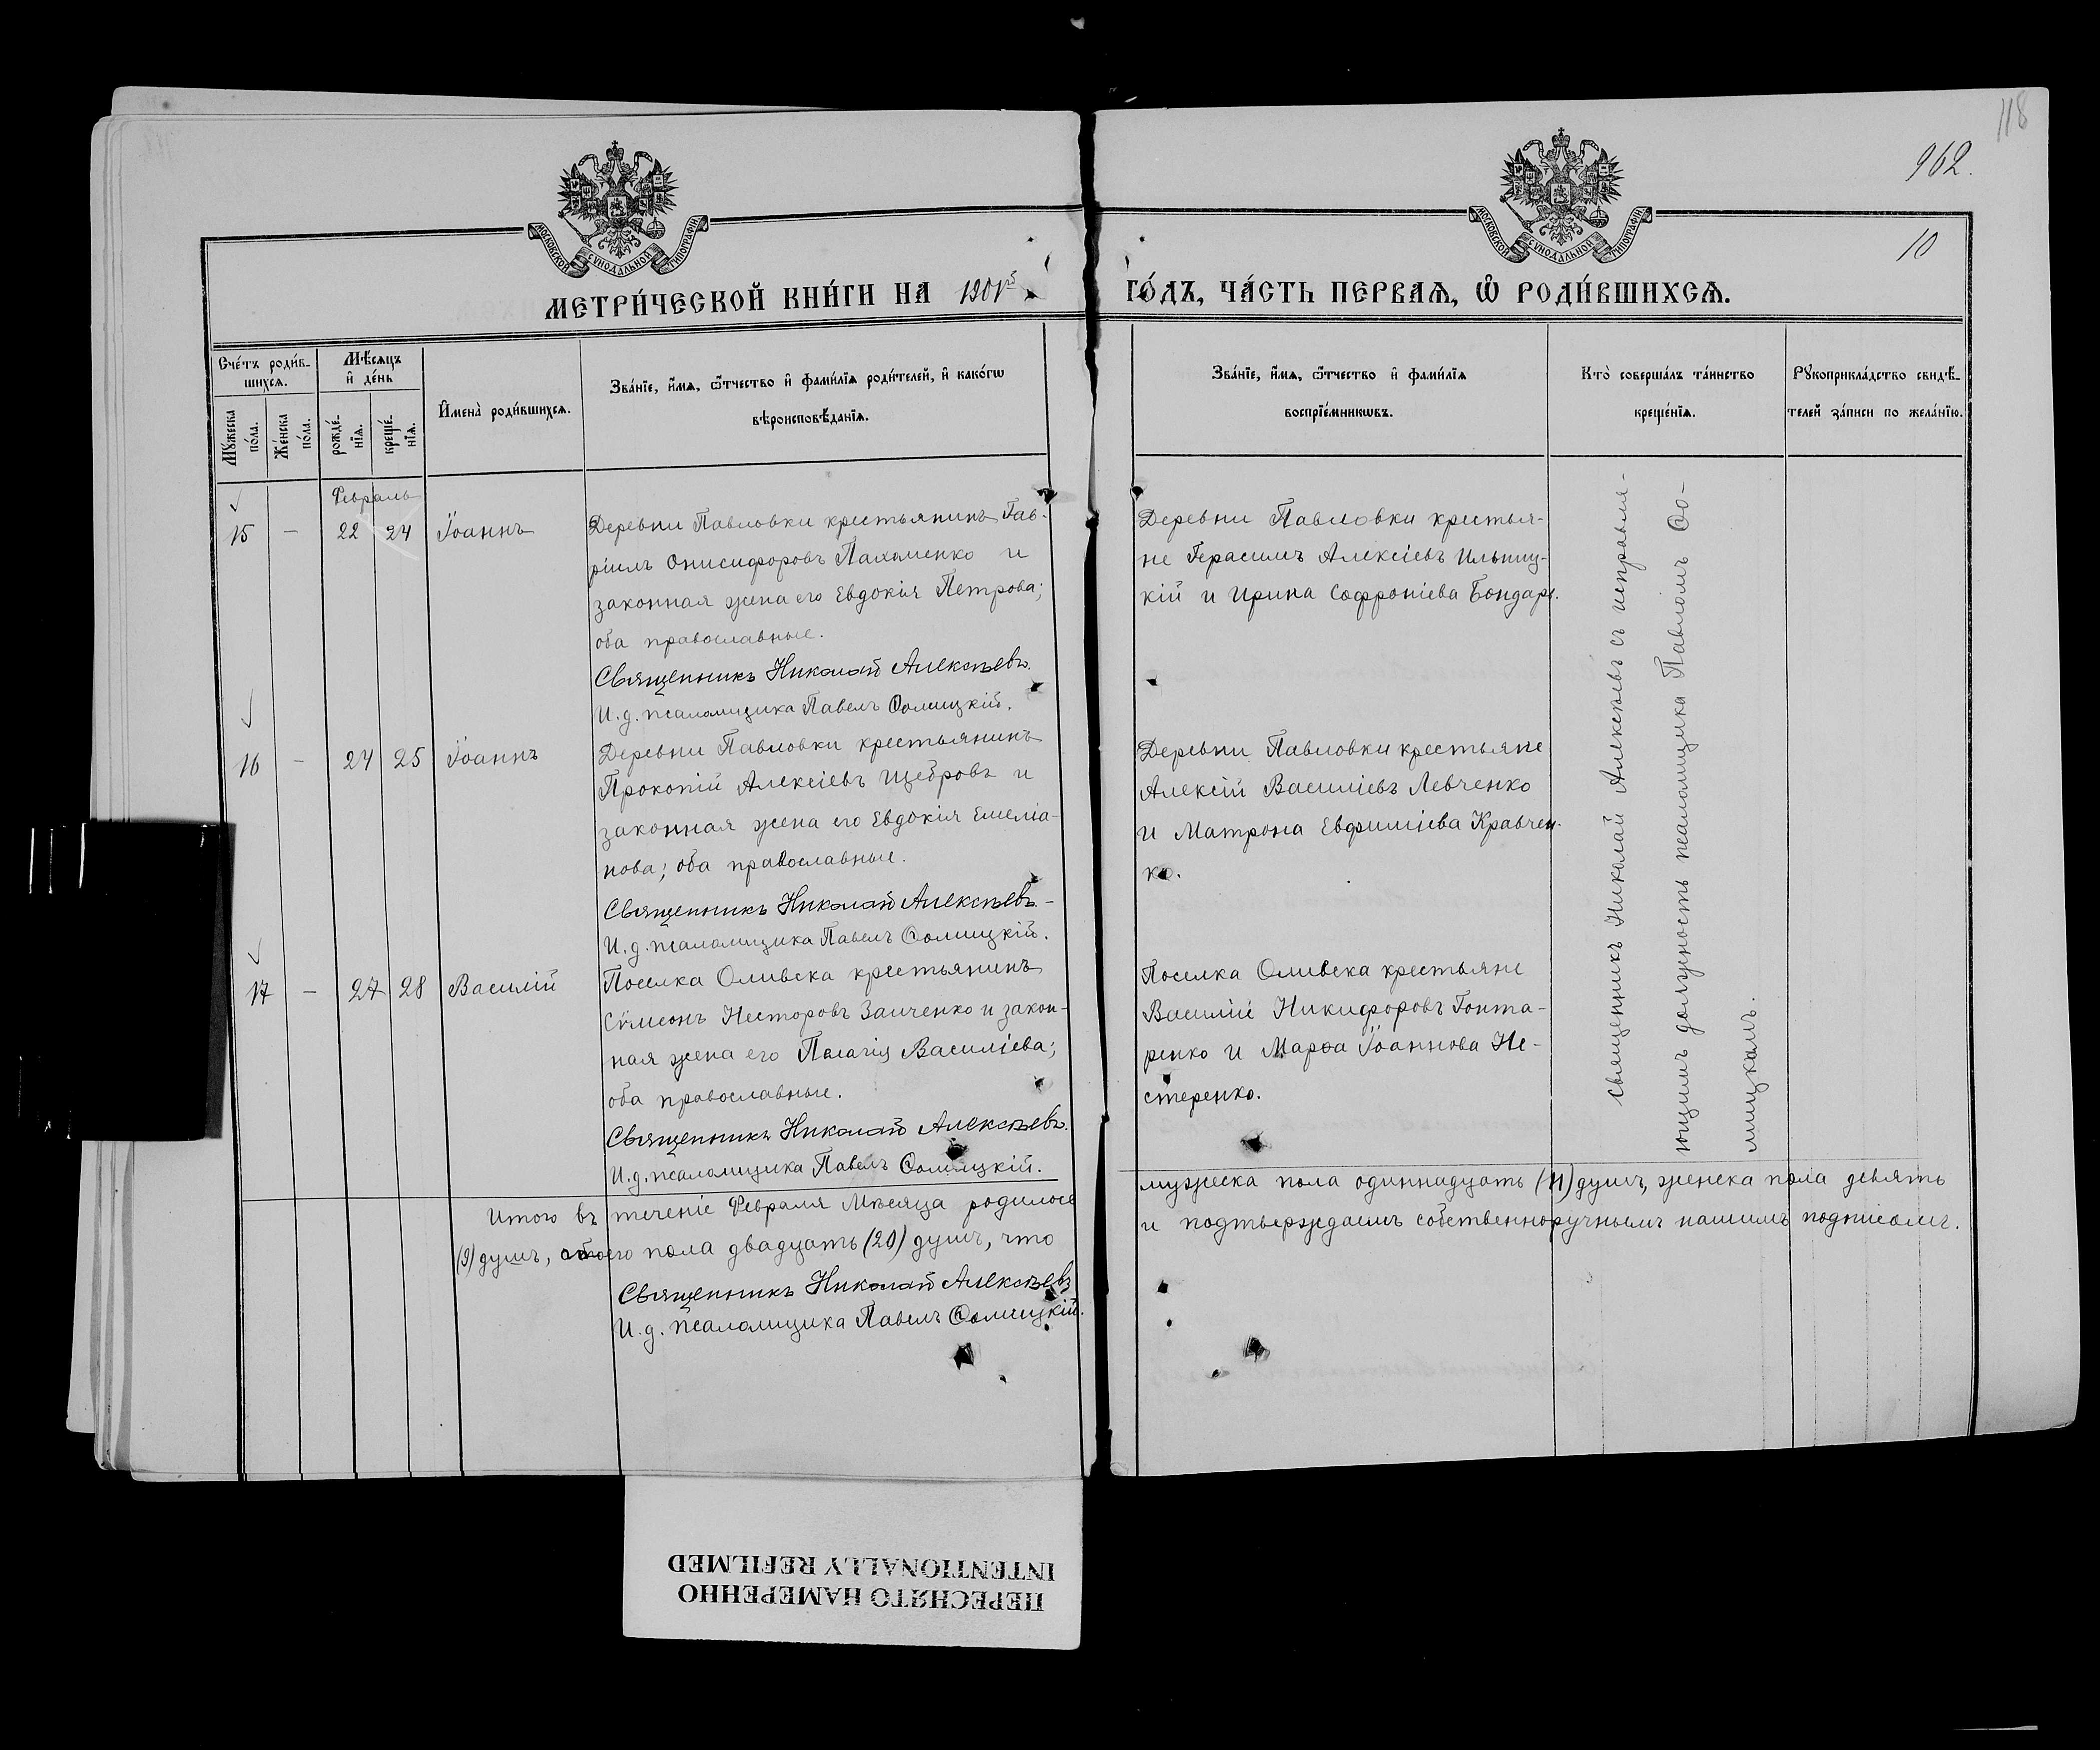 118
962.
10
МОСКОВСКОЙ СѴНОДАЛЬНОЙ ТИПОГРАФІИ.
МОСКОВСКОЙ СѴНОДАЛЬНОЙ ТИПОГРАФІИ.
МЕТРИ́ЧЕСКОЙ КНИ́ГИ НА 1901 ГО́ДЪ, ЧА́СТЬ ПЕРВАѦ, Ѡ҆ РОДИ́ВШИХСѦ.
Сче́тъ роди́в-
шихсѧ.
Мꙋ́жеска по́ла.
Же́нска по́ла.
Мѣ́сяцъ
и҆ де́нь
рожде́-
нїѧ.
креще́-
нїѧ.
И҆мена̀ роди́вшихсѧ.
Зва́нїе, и҆́мѧ, ѻ҆́тчество и҆ фами́лїѧ роди́телей, и҆ како́гѡ
вѣроисповѣ́данїѧ.
Зва́нїе, и҆́мѧ, ѻ҆́тчество и҆ фами́лїѧ
воспрїе́мникѡвъ.
Кто̀ соверша́лъ та́инство
креще́нїѧ.
Рꙋкоприкла́дство свидѣ́-
телей за́писи по жела́нїю.
Февраль
15 — 22 24 Іоаннъ
Деревни Павловки крестьянинъ Гав-
ріилъ Онисифоровъ Пахоменко и
законная жена его Евдокія Петрова;
оба православные.
Священникъ Николай Алексѣевъ.
И.д. псаломщика Павелъ Ѳомицкій.
Деревни Павловки крестья-
не Герасимъ Алексіевъ Ильниц-
кій и Ирина Софроніева Бондарь.
16 — 24 25 Іоаннъ
Деревни Павловки крестьянинъ
Прокопій Алексіевъ Щебровъ и
законная жена его Евдокія Емеліа-
нова; оба православные.
Священникъ Николай Алексѣевъ
И.д. псаломщика Павелъ Ѳомицкій.
Деревни Павловки крестьяне
Алексій Василіевъ Левченко
и Матрона Евфиміева Кравчен-
ко.
17 — 27 28 Василій
Поселка Оливска крестьянинъ
Сѵмеонъ Несторовъ Заиченко и закон-
ная жена его Пелагія Василіева;
оба православные.
Священникъ Николай Алексѣевъ.
И.д. псаломщика Павелъ Ѳомицкій.
Поселка Оливска крестьяне
Василій Никифоровъ Гонта-
ренко и Марѳа Іоаннова Не-
стеренко.
Священникъ Николай Алексѣевъ съ исправля-
ющимъ должность псаломщика Павломъ Ѳо-
мицкимъ.
Итого въ теченіе Февраля Мѣсяца родилось мужеска пола одиннадцать (11) душъ, женска пола девять
(9) душъ, обоего пола двадцать (20) душъ, что и подтверждаемъ собственноручнымъ нашимъ подписомъ.
Священникъ Николай Алексѣевъ
И.д. псаломщика Павелъ Ѳомицкій.
ПЕРЕСНЯТО НАМЕРЕННО
INTENTIONALLY REFILMED